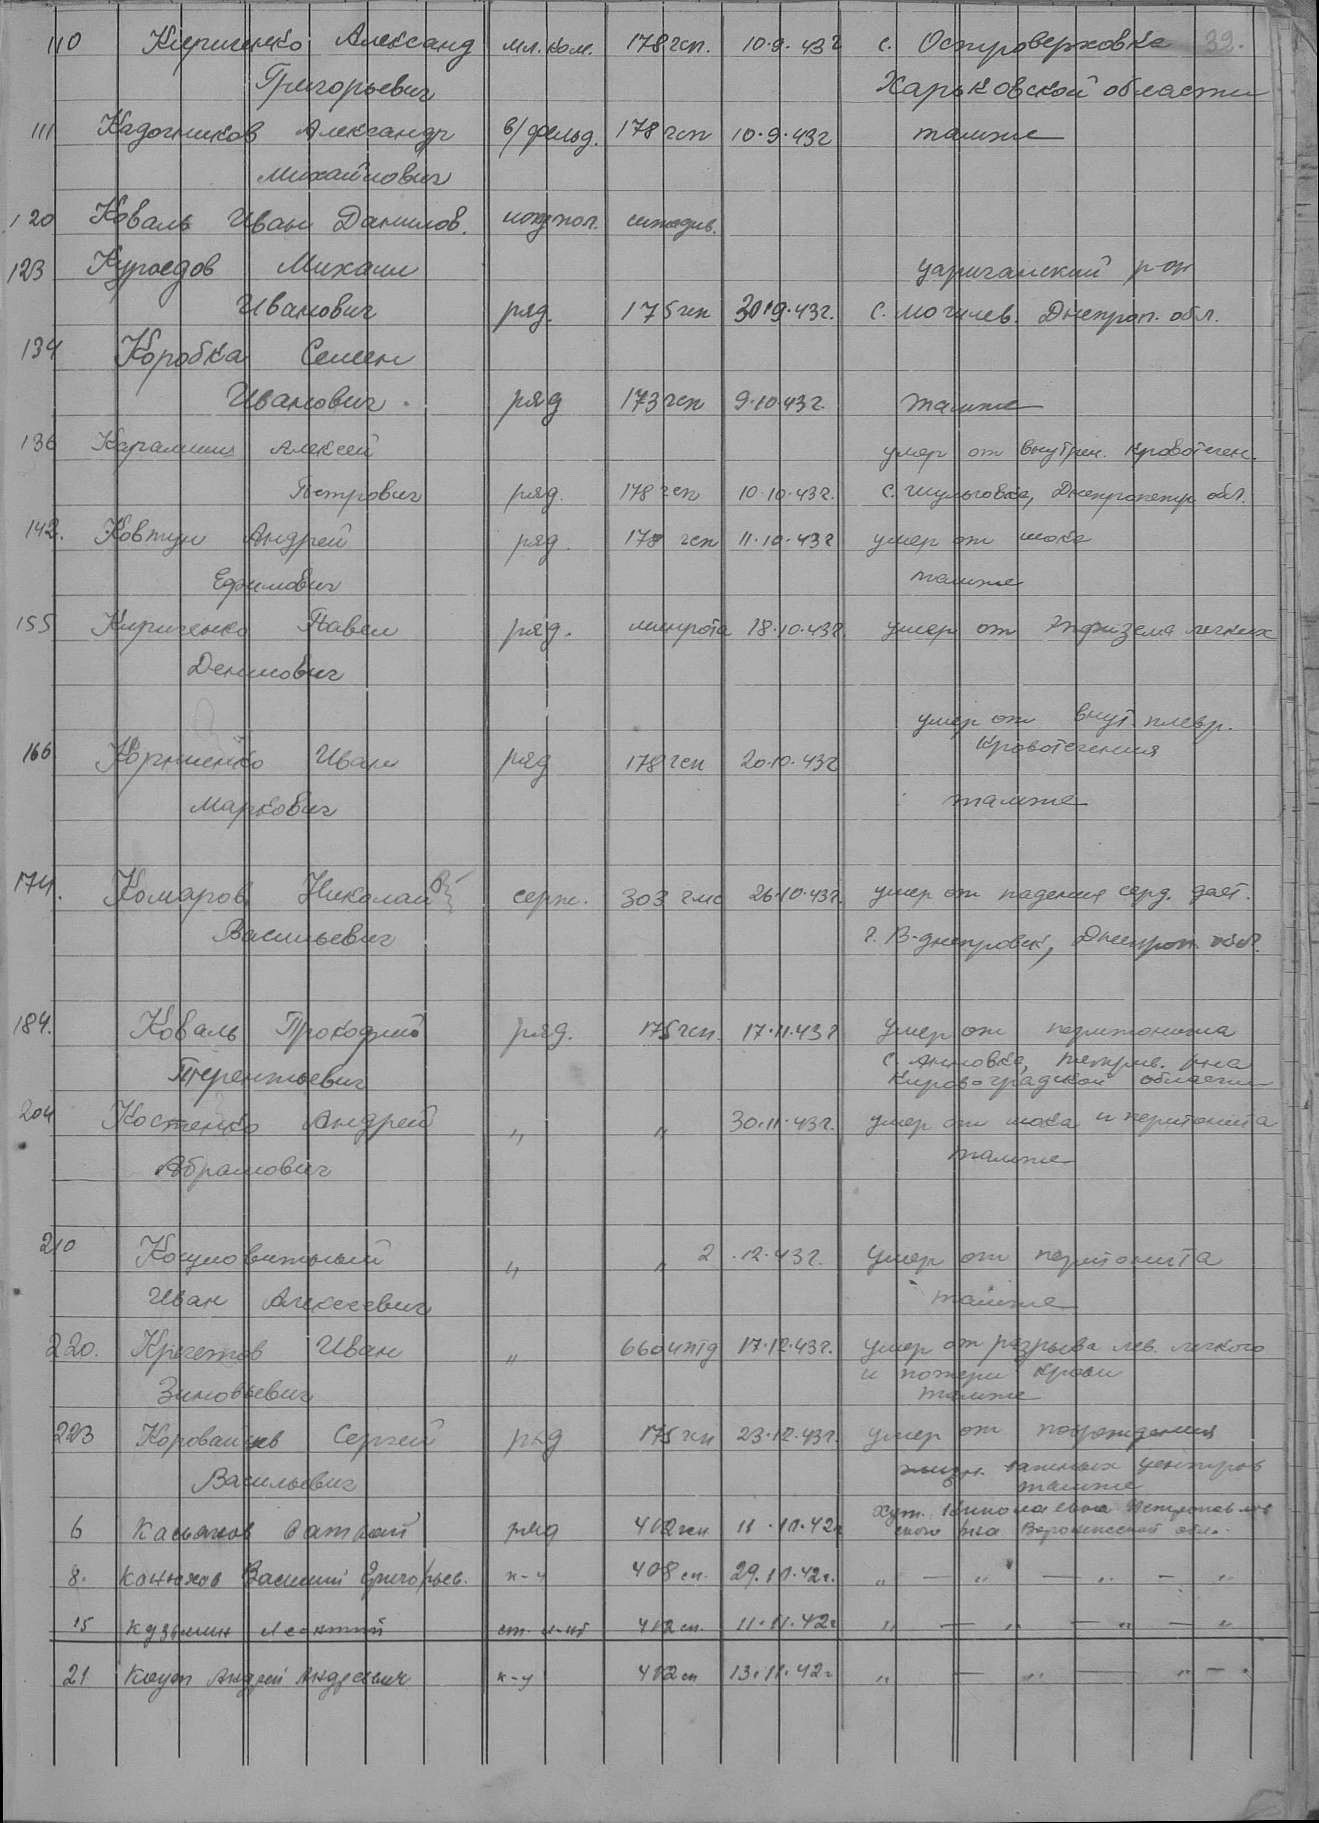 39.
110 Кириченко Александ мл. ком. 178 гсп. 10.9.43г с. Островерховка
Григорьевич Харьковской области
111 Кадочников Александр в/фельд. 178 гсп 10.9.43г также
Михайлович
120 Коваль Иван Данилов.
123 Куроедов Михаил Царичанский р-он
Иванович ряд. 175 гсп 30.9.43г. с. Могилев. Днепроп. обл.
134 Коробка Семен
Иванович. ряд 173 гсп 9.10.43г. также
136 Алексей умер от внутрен. кровотечен.
Петрович ряд. 178 гсп 10.10.43г. с. Шульговка, Днепропетр. обл.
142. Ковтун Андрей ряд. 178 гсп 11.10.43г умер от шока
Ефимович также
155 Кириченко Павел ряд. минрота 18.10.43г. умер от Эмфизема легких
Денисович
умер от внут. плевр.
166 Корниенко Иван ряд 178 гсп 20.10.43г кровотечения
Маркович также
174. Комаров Николай серж. 303 гмс 26.10.43г. умер от падения серд. деят.
Васильевич г. В-днепровск, Днепроп. обл.
184. Коваль Прокофий ряд. 175 гсп. 17.11.43г умер от перитонита
с. Анновка, р-на
Терентьевич Кировоградской области
204 Костенко Андрей " " 30.11.43г. умер от шока и перитонита
Абрамович также
210 " " 2.12.43г. умер от перитонита
Иван Алексеевич также
220. Иван " 660 иптд 17.12.43г. умер от разрыва лев. легкого
и потери крови
Зиновьевич также
223 Сергей ряд 175 гсп 23.12.43г. умер от повреждения
Васильевич жизн. важных центров
также
хут. Николаевка Петропавлов
6 ряд 412 сп 11.11.42г ского р-на Воронежской обл.
8. Конюхов Василий Григорьев. к-ц 408 сп. 29.11.42г. " — " — " — "
15 Кузьмин Леонтий 412 сп. 11.11.42г " — " — " — "
21 Андрей Андреевич к-ц 412 сп 13.11.42г " — " — " — "